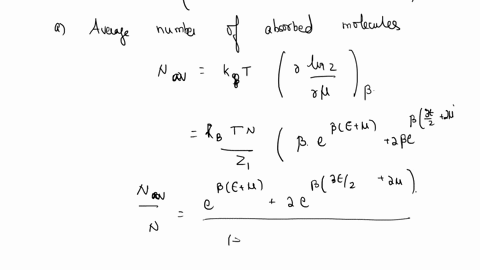 a) Average number of absorbed molecules
N_av = k_B T ( ∂ ln z / ∂μ )_β
= k_B T N / Z_1 ( β e^{β(ε+μ)} + 2β e^{β(3ε/2 + 2μ
N_av / N = e^{β(ε+μ)} + 2 e^{β(3ε/2 + 2μ)} / 1+